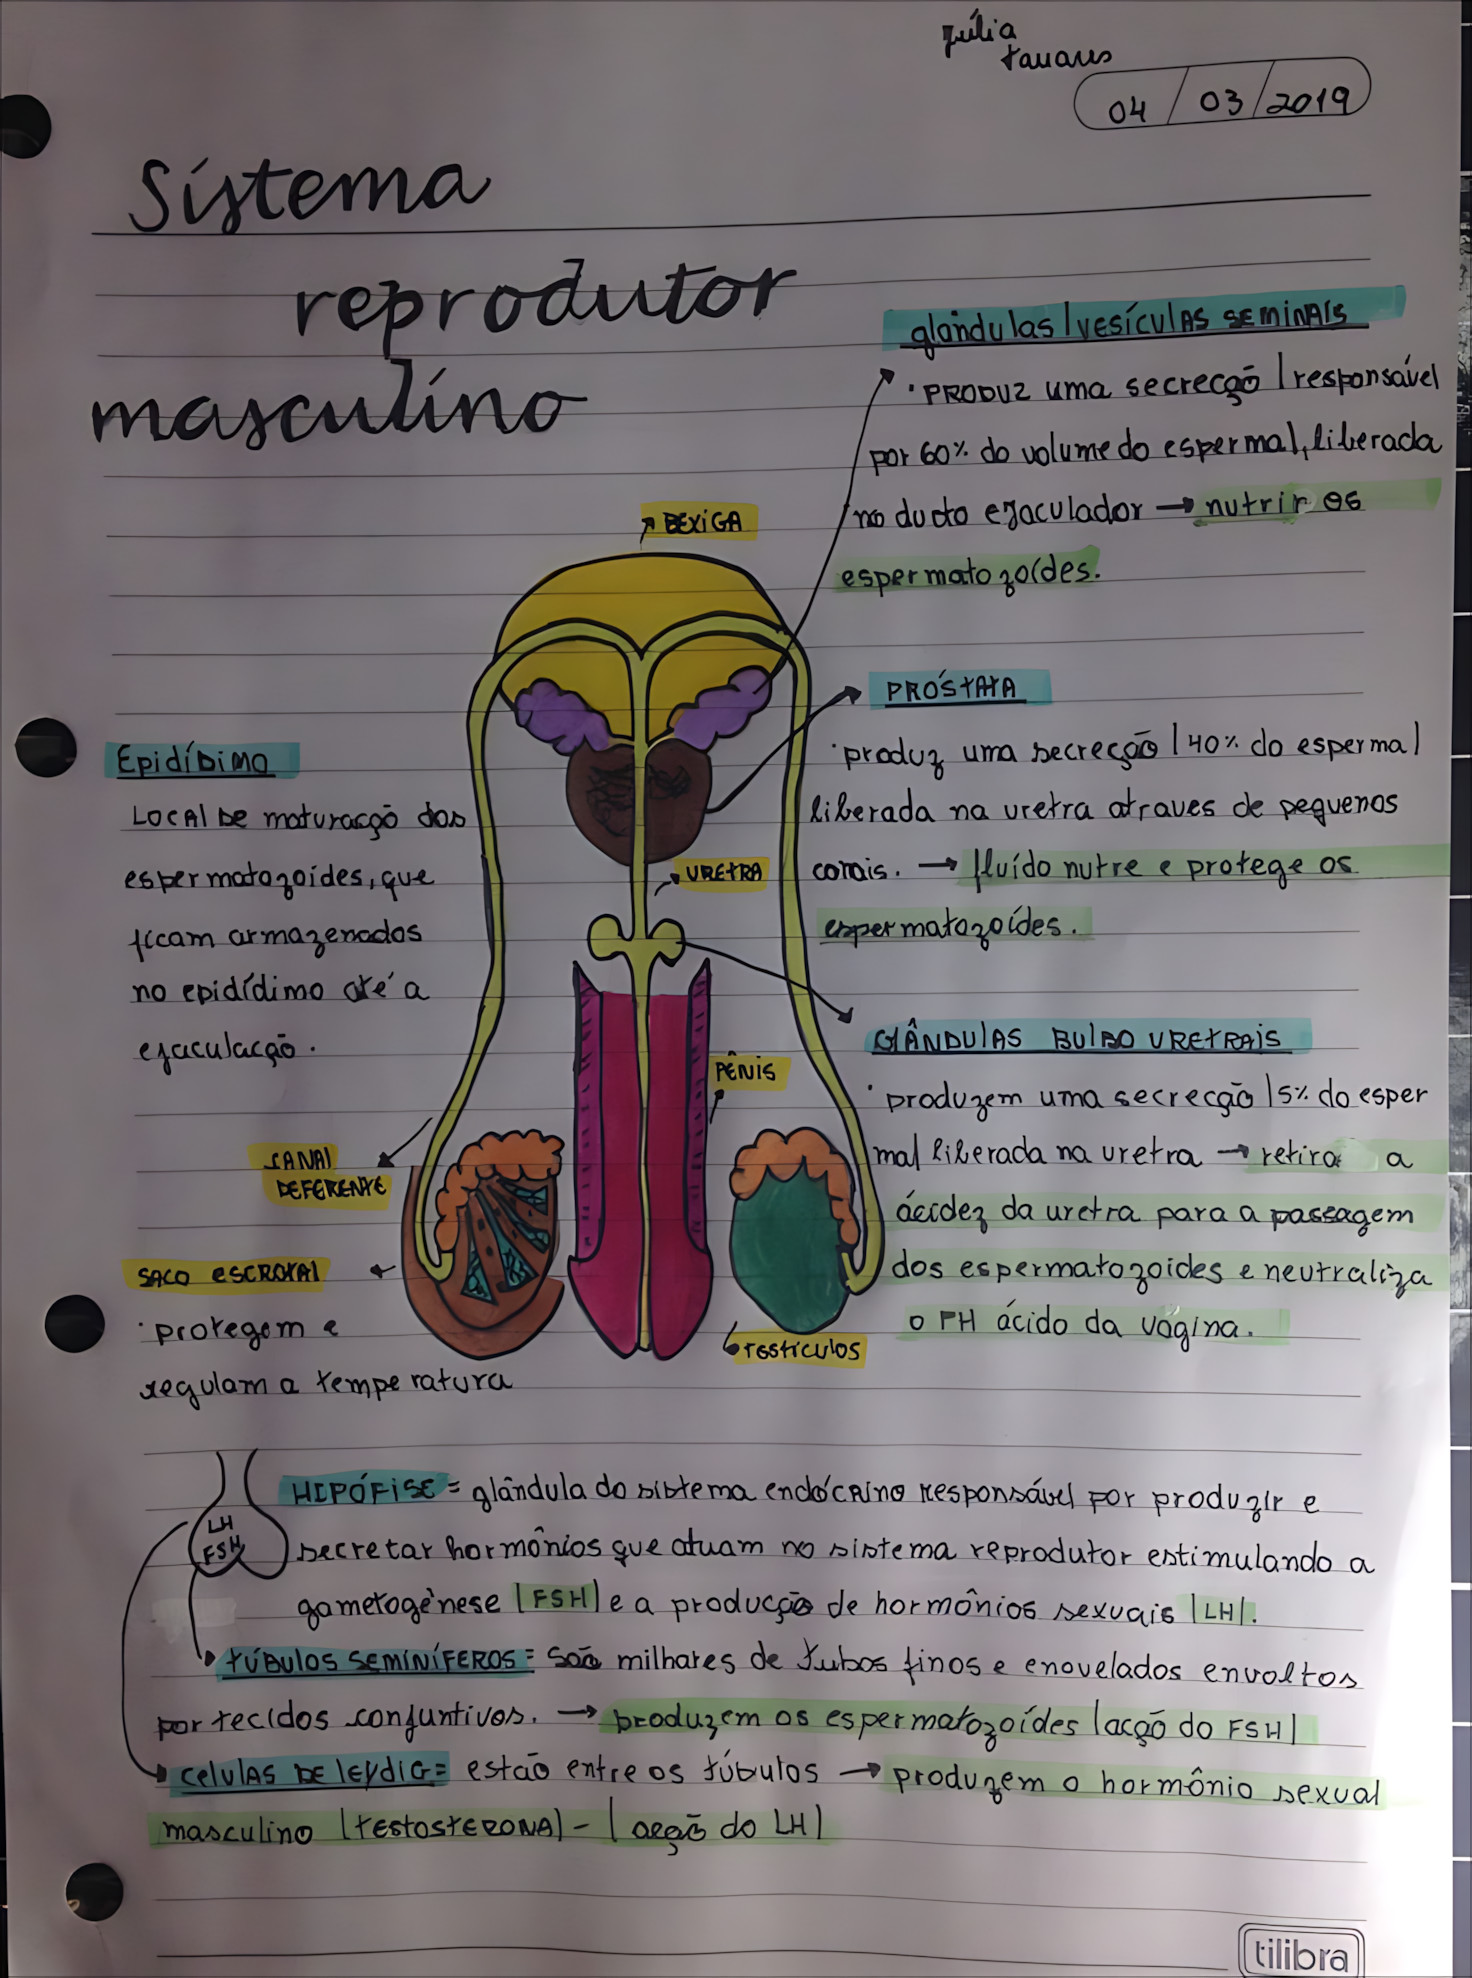 júlia
tavares
04/03/2019
Sistema
reprodutor
masculino
glândulas/vesículas seminais
· PRODUZ uma secreção |responsável
por 60% do volume do espermal, liberada
no ducto ejaculador → nutrir os
espermatozoides.
↗ BEXIGA
PRÓSTATA
· produz uma secreção |40% do esperma|
liberada na uretra atraves de pequenos
canais. → fluído nutre e protege os
espermatozoídes.
URETRA
Epidídimo
LOCAL DE maturação dos
espermatozoides, que
ficam armazenados
no epidídimo até a
ejaculação.
GLÂNDULAS BULBO URETRAIS
· produzem uma secreção |5% do esper
mal liberada na uretra → retira a
ácidez da uretra para a passagem
dos espermatozoides e neutraliza
o PH ácido da vagina.
PÊNIS
CANAL
DEFERENTE
SACO ESCROTAL
· protegem e
regulam a temperatura
TESTÍCULOS
LH
FSH
HIPÓFISE = glândula do sistema endócrino responsável por produzir e
secretar hormônios que atuam no sistema reprodutor estimulando a
gametogênese |FSH| e a produção de hormônios sexuais |LH|.
TÚBULOS SEMINÍFEROS = São milhares de tubos finos e enovelados envoltos
por tecidos conjuntivos. → produzem os espermatozoídes |ação do FSH|
CELULAS DE LEYDIG = estão entre os túbulos → produzem o hormônio sexual
masculino |TESTOSTERONA| - |ação do LH|
tilibra